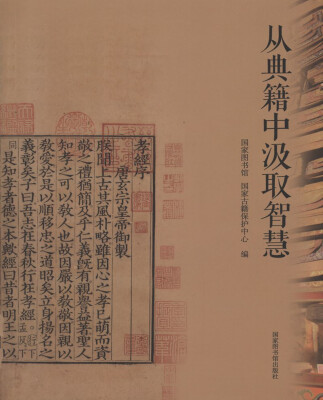 从典籍中汲取智慧
国家图书馆 国家古籍保护中心 编
国家图书馆出版社
孝經序
唐玄宗皇帝御製
朕聞上古其風朴略雖因心之孝已萌而資
敬之禮猶簡及乎仁義既有親譽益著聖人
知孝之可以教人也故因嚴以教敬因親以
教愛於是以順移忠之道昭矣立身揚名之
義彰矣子曰吾志在春秋行在孝經行下孟反下
同是知孝者德之本歟經曰昔者明王之以